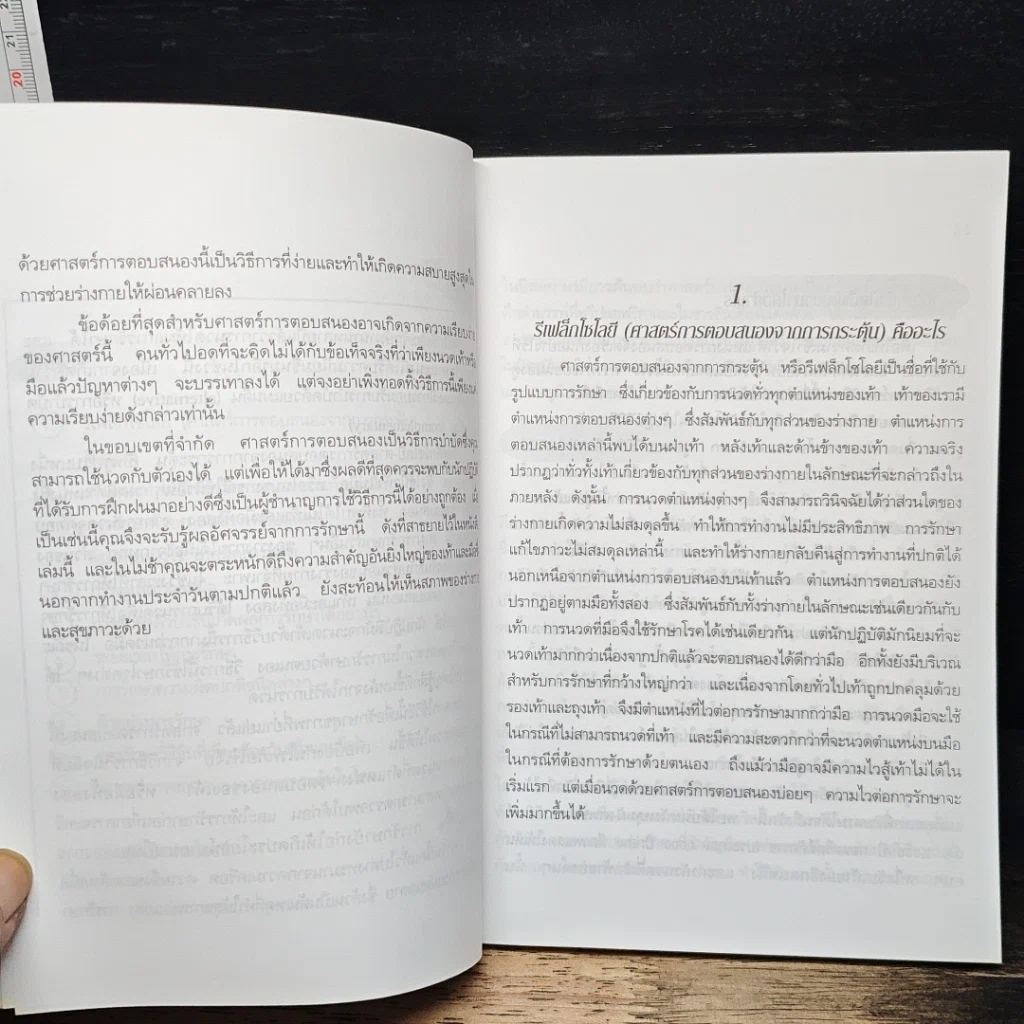 22
21
20
ด้วยศาสตร์การตอบสนองนี้เป็นวิธีการที่ง่ายและทำให้เกิดความสบายสูงสุดใน
การช่วยร่างกายให้ผ่อนคลายลง
ข้อด้อยที่สุดสำหรับศาสตร์การตอบสนองอาจเกิดจากความเรียบง่าย
ของศาสตร์นี้ คนทั่วไปอดที่จะคิดไม่ได้กับข้อเท็จจริงที่ว่าเพียงนวดเท้าหรือ
มือแล้วปัญหาต่างๆ จะบรรเทาลงได้ แต่จงอย่าเพิ่งทอดทิ้งวิธีการนี้เพียงแค่
ความเรียบง่ายดังกล่าวเท่านั้น
ในขอบเขตที่จำกัด ศาสตร์การตอบสนองเป็นวิธีการบำบัดซึ่งคุณ
สามารถใช้นวดกับตัวเองได้ แต่เพื่อให้ได้มาซึ่งผลดีที่สุดควรจะพบกับนักปฏิบัติ
ที่ได้รับการฝึกฝนมาอย่างดีซึ่งเป็นผู้ชำนาญการใช้วิธีการนี้ได้อย่างถูกต้อง
เป็นเช่นนี้คุณจึงจะรับรู้ผลอัศจรรย์จากการรักษานี้ ดังที่สาธยายไว้ในหนังสือ
เล่มนี้ และในไม่ช้าคุณจะตระหนักดีถึงความสำคัญอันยิ่งใหญ่ของเท้าและมือที่
นอกจากทำงานประจำวันตามปกติแล้ว ยังสะท้อนให้เห็นสภาพของร่างกาย
และสุขภาวะด้วย
1.
รีเฟล็กโซโลยี (ศาสตร์การตอบสนองจากการกระตุ้น) คืออะไร
ศาสตร์การตอบสนองจากการกระตุ้น หรือรีเฟล็กโซโลยีเป็นชื่อที่ใช้กับ
รูปแบบการรักษา ซึ่งเกี่ยวข้องกับการนวดทั่วทุกตำแหน่งของเท้า เท้าของเรามี
ตำแหน่งการตอบสนองต่างๆ ซึ่งสัมพันธ์กับทุกส่วนของร่างกาย ตำแหน่งการ
ตอบสนองเหล่านี้พบได้บนฝ่าเท้า หลังเท้าและด้านข้างของเท้า ความจริง
ปรากฏว่าทั่วทั้งเท้าเกี่ยวข้องกับทุกส่วนของร่างกายในลักษณะที่จะกล่าวถึงใน
ภายหลัง ดังนั้น การนวดตำแหน่งต่างๆ จึงสามารถวินิจฉัยได้ว่าส่วนใดของ
ร่างกายเกิดความไม่สมดุลขึ้น ทำให้การทำงานไม่มีประสิทธิภาพ การรักษา
แก้ไขภาวะไม่สมดุลเหล่านี้ และทำให้ร่างกายกลับคืนสู่การทำงานที่ปกติได้
นอกเหนือจากตำแหน่งการตอบสนองบนเท้าแล้ว ตำแหน่งการตอบสนองยัง
ปรากฏอยู่ตามมือทั้งสอง ซึ่งสัมพันธ์กับทั้งร่างกายในลักษณะเช่นเดียวกันกับ
เท้า การนวดที่มือจึงใช้รักษาโรคได้เช่นเดียวกัน แต่นักปฏิบัติมักนิยมที่จะ
นวดเท้ามากกว่าเนื่องจากปกติแล้วจะตอบสนองได้ดีกว่ามือ อีกทั้งยังมีบริเวณ
สำหรับการรักษาที่กว้างใหญ่กว่า และเนื่องจากโดยทั่วไปเท้าถูกปกคลุมด้วย
รองเท้าและถุงเท้า จึงมีตำแหน่งที่ไวต่อการรักษามากกว่ามือ การนวดมือจะใช้
ในกรณีที่ไม่สามารถนวดที่เท้า และมีความสะดวกกว่าที่จะนวดตำแหน่งบนมือ
ในกรณีที่ต้องการรักษาด้วยตนเอง ถึงแม้ว่ามืออาจมีความไวสู้เท้าไม่ได้ใน
เริ่มแรก แต่เมื่อนวดด้วยศาสตร์การตอบสนองบ่อยๆ ความไวต่อการรักษาจะ
เพิ่มมากขึ้นได้